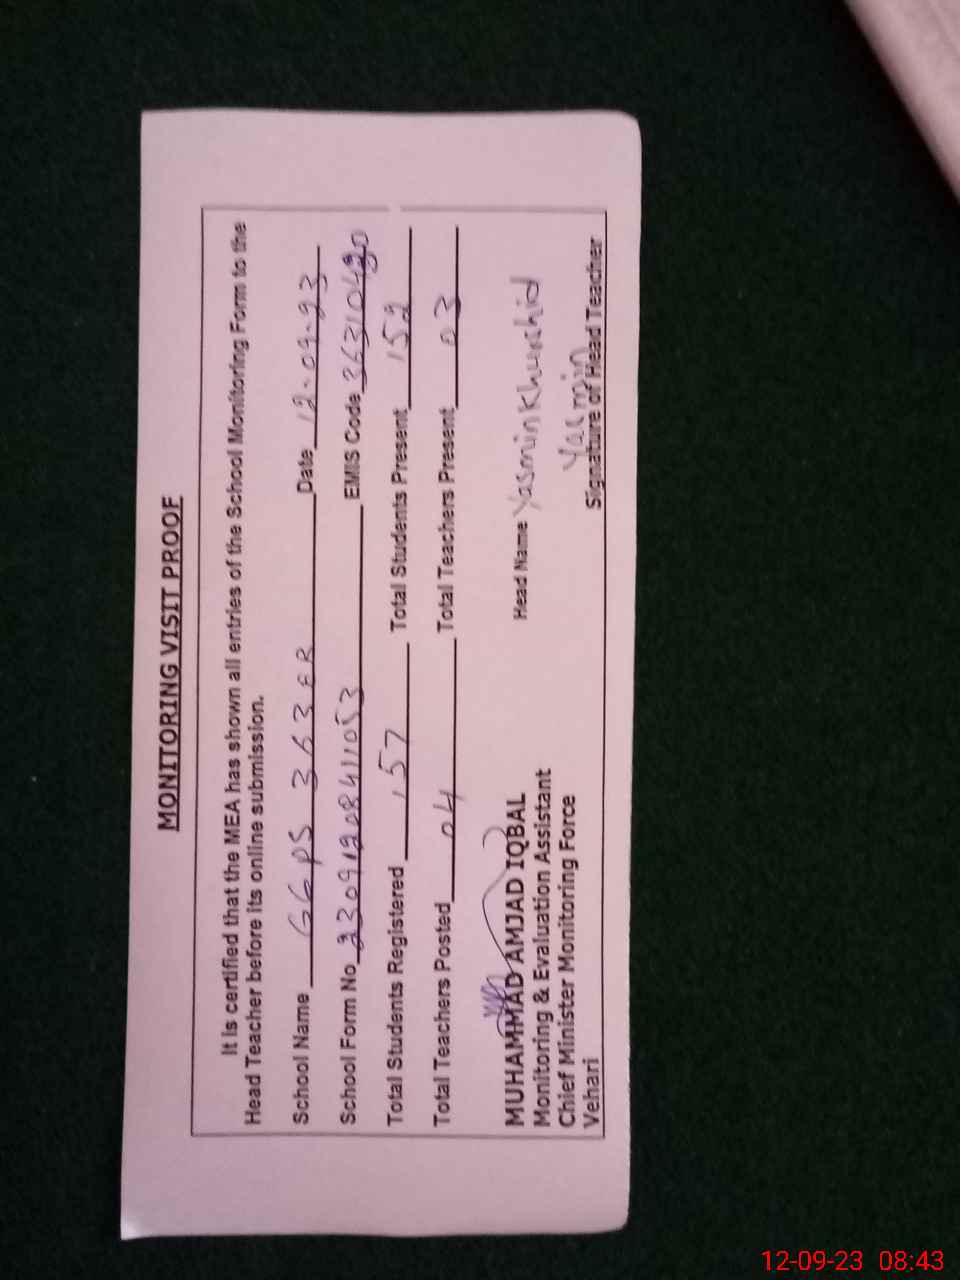 MONITORING VISIT PROOF
It is certified that the MEA has shown all entries of the School Monitoring Form to the
Head Teacher before its online submission.
School Name GGPS 363 EB Date 12-09-23
School Form No 23091208411053 EMIS Code
Total Students Registered 157 Total Students Present 152
Total Teachers Posted 04 Total Teachers Present 03
MUHAMMAD AMJAD IQBAL Head Name Yasmin Khurshid
Monitoring & Evaluation Assistant
Chief Minister Monitoring Force Yasmin
Vehari Signature of Head Teacher
12-09-23 08:43